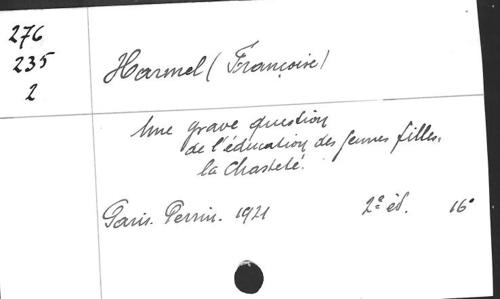 276
235
2
Harmel (Françoise)
Une grave question
de l'éducation des jeunes filles.
la Chasteté.
Paris. Perrin. 1921 2e éd. 16°